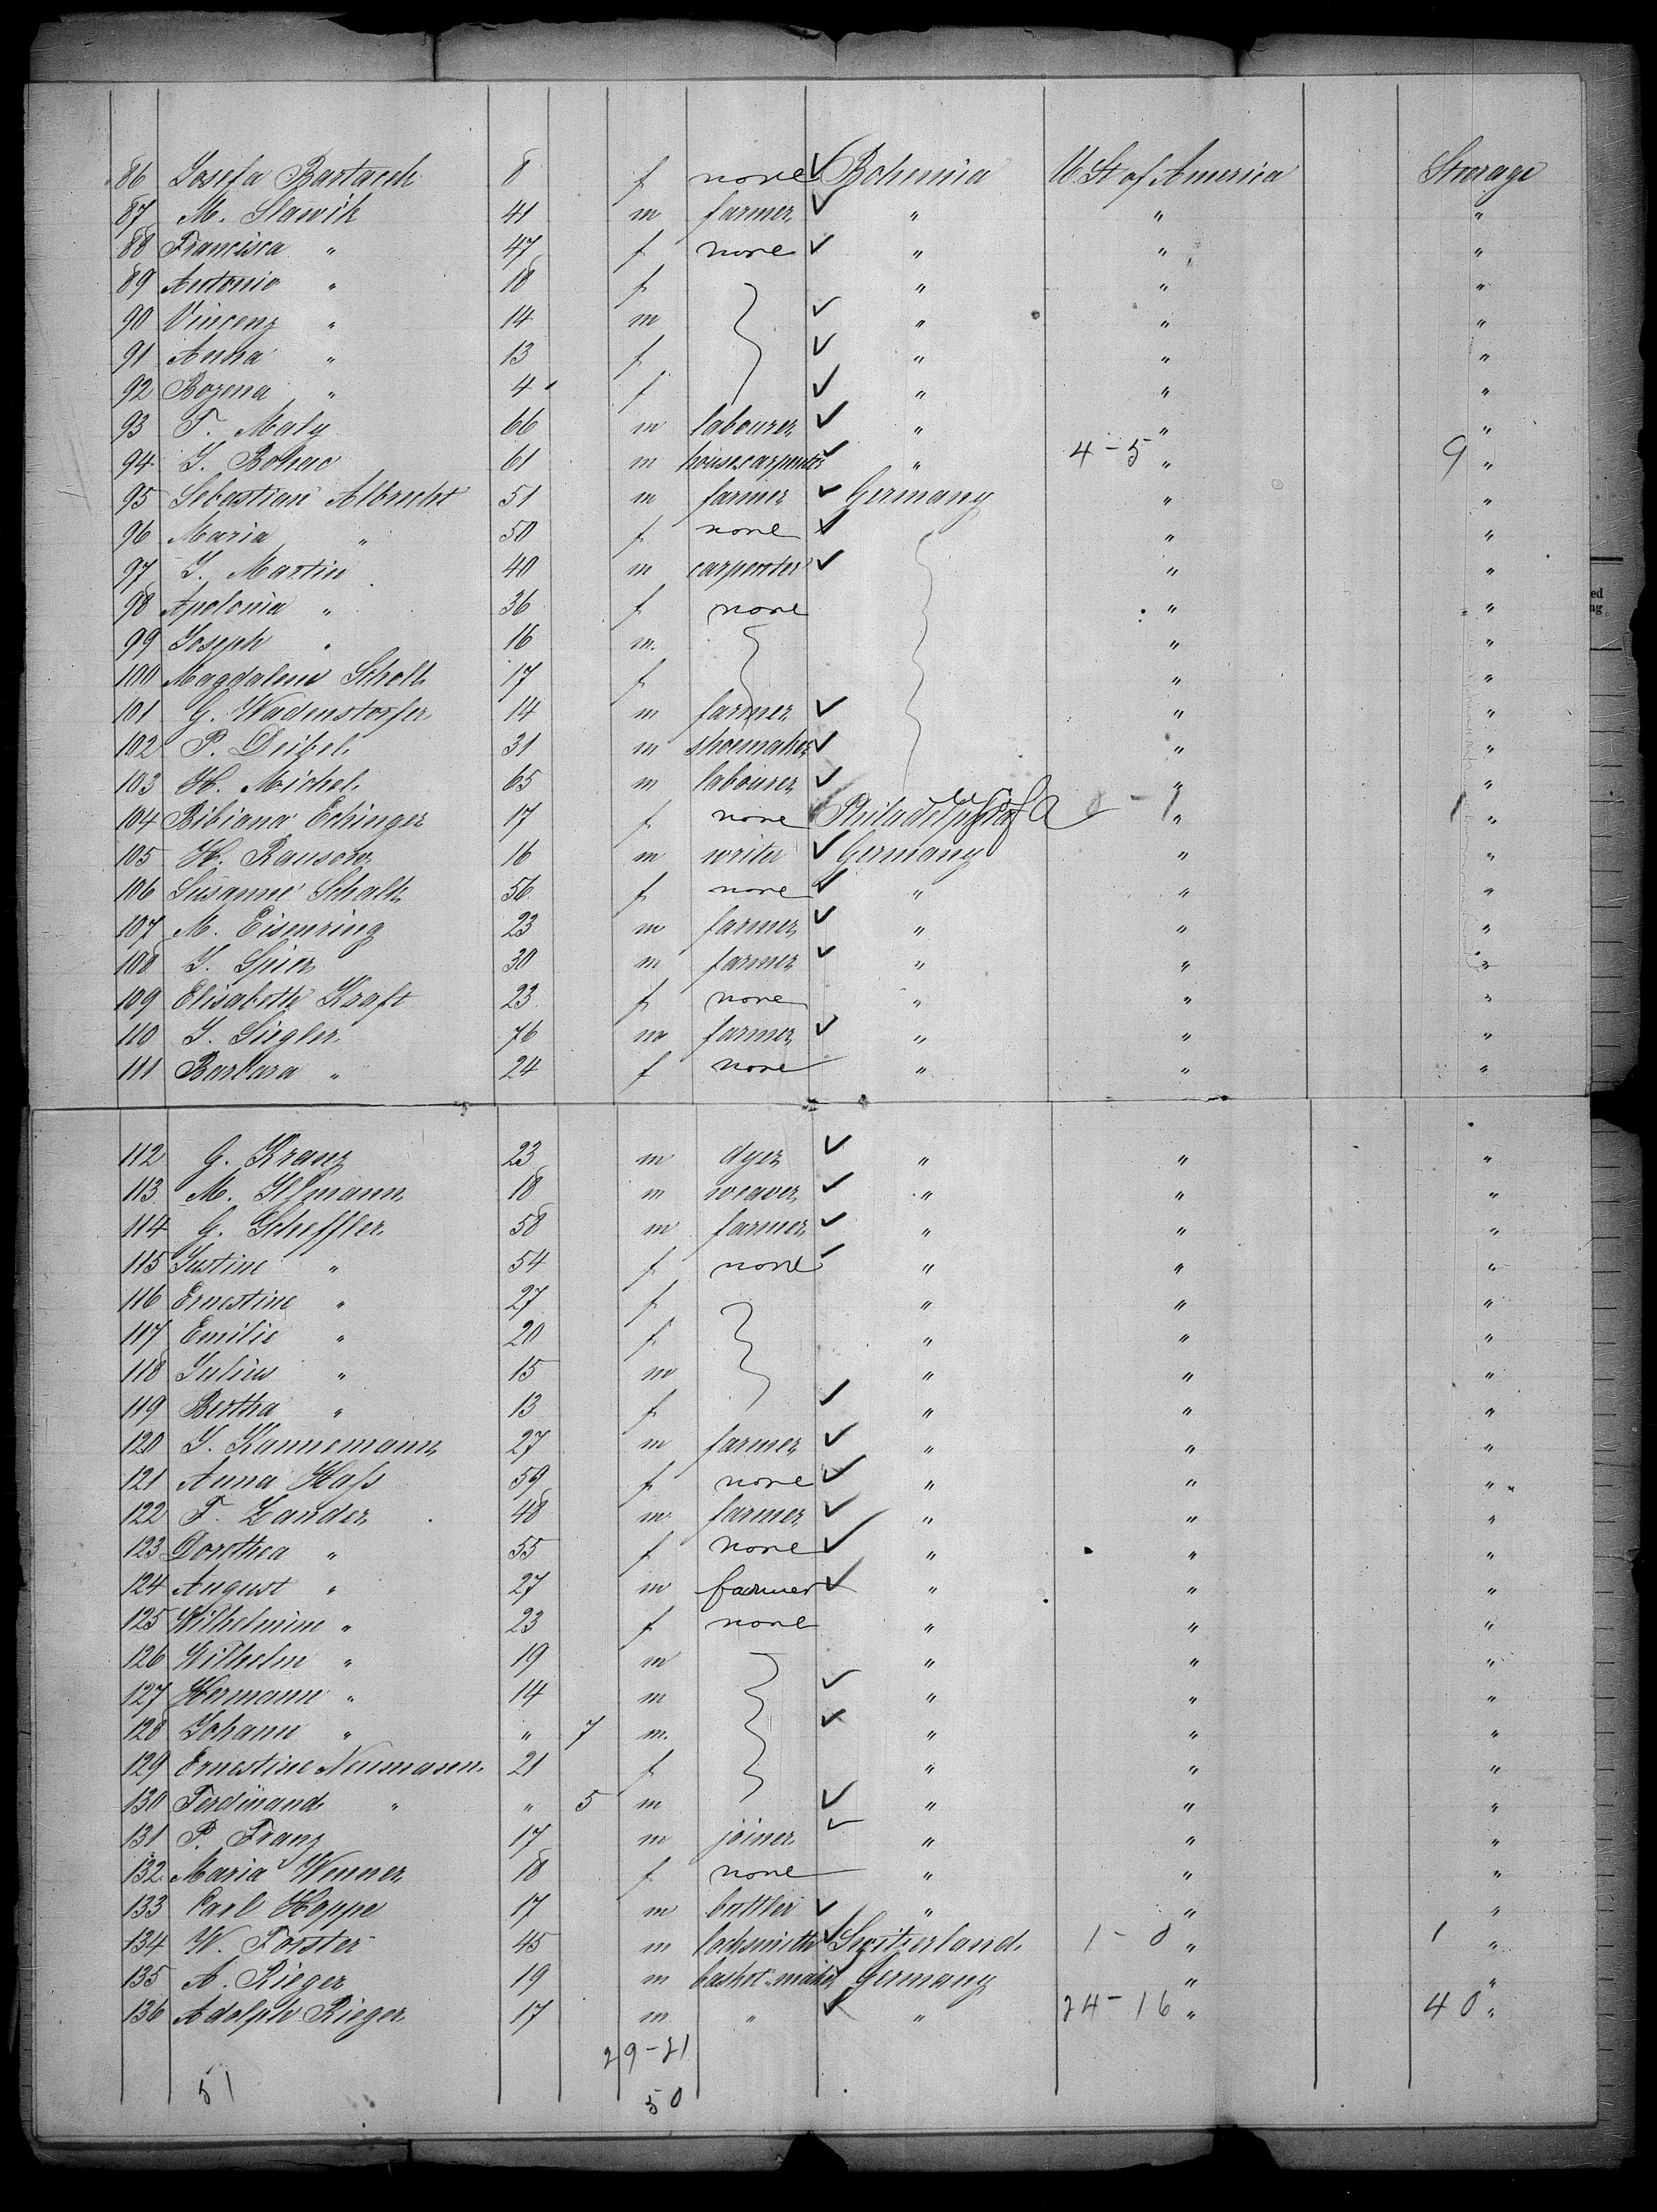 86 Josefa Bartacek 8 f none ✓ Bohemia U. St of America Steerage
87 M. Slawik 41 m farmer ✓ " " "
88 Francisca " 47 f none ✓ " " "
89 Antonio " 18 f " " "
90 Vincenz " 14 m ✓ " " "
91 Anna " 13 f ✓ " " "
92 Bozena " 4 f ✓ " " "
93 F. Maly 66 m labourer ✓ " " "
94 J. Bohac 61 m housecarpenter ✓ " 4-5 " 9 "
95 Sebastian Albrecht 51 m farmer ✓ Germany " "
96 Maria " 50 f none ✓ " "
97 J. Martin 40 m carpenter ✓ " "
98 Apolonia " 36 f none " "
99 Joseph " 16 m. " "
100 Magdalena Scholl 17 f " "
101 G. Wadenstorfer 14 m farmer ✓ " "
102 P. Deibel 31 m shoemaker ✓ " "
103 H. Michel 65 m labourer ✓ " "
104 Bibiana Echinger 17 f none Philadelphia U S of A 0-1 " 1 "
105 H. Ransow 16 m writer ✓ Germany " "
106 Susanne Schalk 56 f none ✓ " " "
107 M. Eismring 23 m farmer ✓ " " "
108 J. Spier 30 m farmer ✓ " " "
109 Elisabeth Kraft 23 f none " " "
110 J. Siegler 76 m farmer ✓ " " "
111 Barbara " 24 f none " " "
112 G. Kranz 23 m dyer ✓ " " "
113 M. Ilsmann 18 m weaver ✓ " " "
114 G. Scheffler 58 m farmer ✓ " " "
115 Justine " 54 f none ✓ " " "
116 Ernestine " 27 f " " "
117 Emilie " 20 f " " "
118 Julius " 15 m " " "
119 Bertha " 13 f ✓ " " "
120 J. Kannemann 27 m farmer ✓ " " "
121 Anna Hass 59 f none ✓ " " "
122 F. Zander 48 m farmer ✓ " " "
123 Dorothea " 55 f none ✓ " " "
124 August " 27 m farmer ✓ " " "
125 Wilhelmine " 23 f none " " "
126 Wilhelm " 19 m " " "
127 Hermann " 14 m ✓ " " "
128 Johann " " 7 m. ✓ " " "
129 Ernestine Neumann 21 f " " "
130 Ferdinand " " 5 m ✓ " " "
131 P. Franz 17 m joiner ✓ " " "
132 Maria Wenner 18 f none " " "
133 Carl Hoppe 17 m bottler ✓ " " "
134 W. Forster 45 m locksmith ✓ Switzerland 1-0 " 1 "
135 A. Rieger 19 m basket-maker ✓ Germany " "
136 Adolph Rieger 17 m " ✓ " 24-16 " 40 "
29-21
51 50